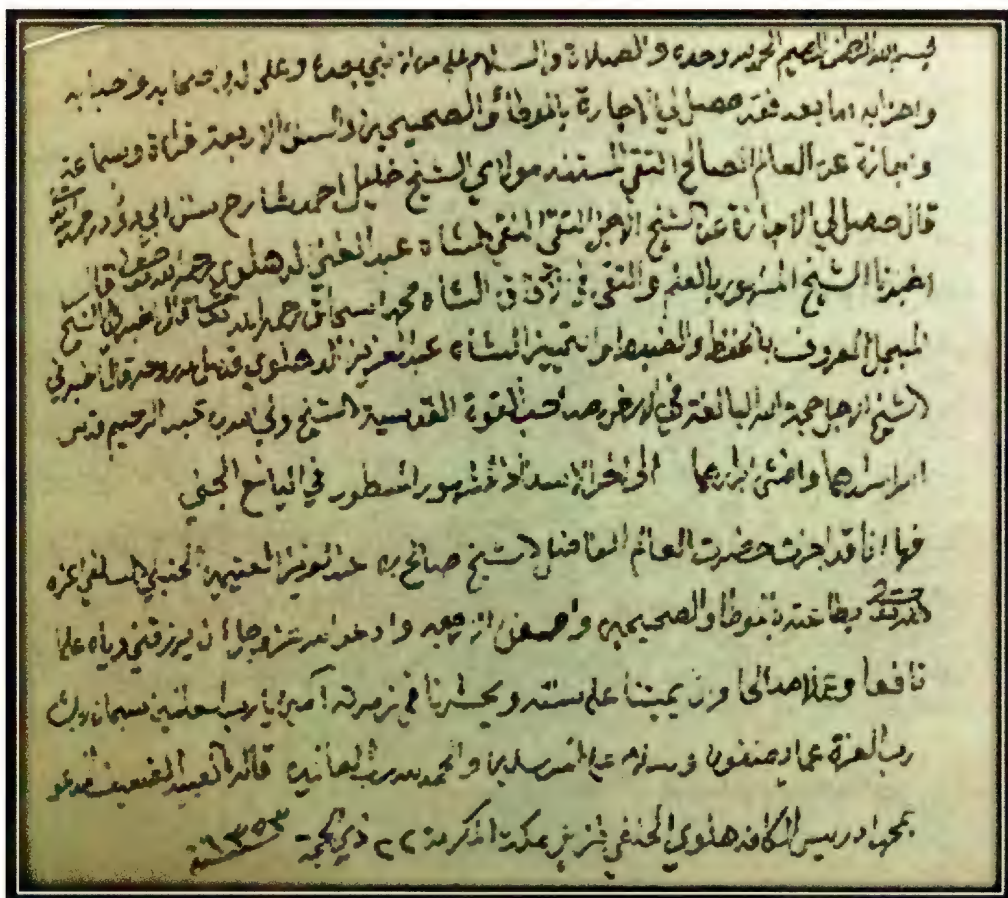 بسم الله الرحمن الرحيم الحمد لله وحده والصلاة والسلام على من لا نبي بعده وعلى آله وصحابه وحزبابه
واحزابه اما بعد فقد حصل لي الاجازة بالموطأ والصحيحين والسنن الاربعة قراءة وسماعة
واجازة عن العالم الصالح التقي مولاي الشيخ خليل احمد شارح سنن ابي داؤد رحمة الله
قال حصل لي الاجازة عن الشيخ الاجل التقي النقي الشاه عبد الغني الدهلوي رحمه الله قال
اخبرنا الشيخ المشهور بالعلم والتقى في الشاه محمد اسحاق رحمه الله تعالى قال اخبرني الشيخ
المبجل المعروف بالحفظ والضبط والتمييز الشاه عبد العزيز الدهلوي قدس سره قال اخبرني
الشيخ الاجل حجة الله البالغة في الارض صاحب القوة القدسية الشيخ ولي الله بن عبد الرحيم قدس
اسرارهما الى آخر الاسناد المشهور المسطور في اليانع الجني
فها انا قد اجزت حضرت العالم الفاضل الشيخ صالح بن عبد العزيز العثيمين الحنبلي السلفي اعزه
الله بطاعته بالموطا والصحيحين والسنن الاربعة وادعو الله عز وجل ان يرزقني واياه علما
نافعا وعملا صالحا وان يميتنا على سنته ويحشرنا في زمرته آمين يا رب العلمين سبحان ربك
رب العزة عما يصفون وسلام على المرسلين والحمد لله رب العالمين قاله العبد الضعيف المدعو
بمحمد ادريس الكاندهلوي الحنفي نزيل مكة المكرمة ٢٢ ذي الحجة ١٣٥٣